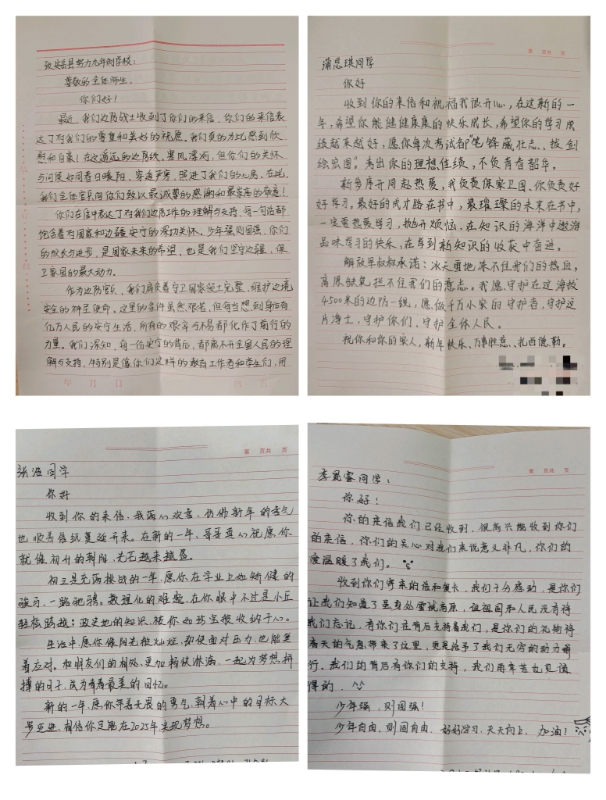 张家岳县努力九年制学校:
尊敬的全体师生:
你们好!
最近,我们边防战士收到了你们的来信,你们的来信表
达了对我们的尊重和美好的祝愿,我们真的为此感到欣
慰和自豪!在这遥远的边防线,寒风凛冽,但你们的关怀
与问候如同春日暖阳,穿透严寒,照进了我们的心房,在此,
我们全体官兵向你们致以最诚挚的感谢和最崇高的敬意!
你们在信中表达了对我们边防工作的理解与支持,每一句话都
饱含着对国家和边疆安宁的深切关怀。少年强则国强,你们
的成长与进步,是国家未来的希望,也是我们坚守边疆,保
卫家园的最大动力。
作为边防官兵,我们肩负着守卫国家领土完整,维护边境
安全的神圣使命。这里的条件虽然艰苦,但每当想到身后有
亿万人民的安宁生活,所有的艰辛与不易都化作了前行的
力量。我们深知,每一份安宁的背后,都离不开全国人民的理
解与支持,特别是像你们这样的教育工作者和学生们,用
年 月 日
第 页共 页
蒲思琪同学
你好
收到你的来信和祝福我很开心,在这新的一
年,希望你能健健康康的快乐成长,希望你的学习成
绩越来越好,愿你每次考试都“笔锋藏壮志、拔剑
绘宏图”考出你的理想佳绩,不负青春韶华。
新岁序开同赴热爱,我负责保家卫国,你负责好
好学习,最好的武力路在书中,最璀璨的未来在书中,
一定要热爱学习,抛开烦恼,在知识的海洋中遨游
品味学习的快乐,在得到新知识的收获中奋进。
解放军叔叔承诺:冰天雪地冻不住我们的热血,
高原缺氧拦不住我们的意志。我愿守护在这海拔
4500米的边防一线,愿做千万小家的守护者,守护这
片净土,守护你们、守护全体人民。
祝你和你的家人,新年快乐、万事胜意、扎西德勒。
第 页共 页
张 同学
你好
收到你的来信,我满心欢喜,仿佛新年的喜气
也顺着信纸蔓延开来。在新的一年,哥哥真心祝愿你
就像初升的朝阳,光芒越来越盛。
初三是充满挑战的一年,愿你在学业上如矫健的
骏马,一路驰骋。数理化的难题,在你眼中不过是小丘
轻松跨越;文史地的知识,被你如珍宝般收纳于心。
生活中,愿你像阳光般灿烂,即使面对压力,也能笑
着应对。和朋友们的相处,更加畅快淋漓,一起为梦想拼
搏的日子,成为青春最美的回忆。
新的一年,愿你带着无畏的勇气,朝着心中的目标大
步迈进,相信你定能在2025年实现梦想。
第 页共 页
李 同学:
你好!
你的来信我们已经收到,很高兴能收到你们
的来信,你们的关心对我们来说意义非凡,你们的
爱温暖了我们。
收到你们寄来的信和贺卡,我们十分感动,是你们
让我们知道了虽身处雪域高原,但祖国和人民没有将
我们忘记,有你们在背后支持着我们,是你们的礼物将
春天的气息带来了这里,更是给予了我们无穷的动力前
行。我们的背后有你们的支持,我们再辛苦也是值
得的。
少年强,则国强!
少年自由,则国自由,好好学习,天天向上,加油!